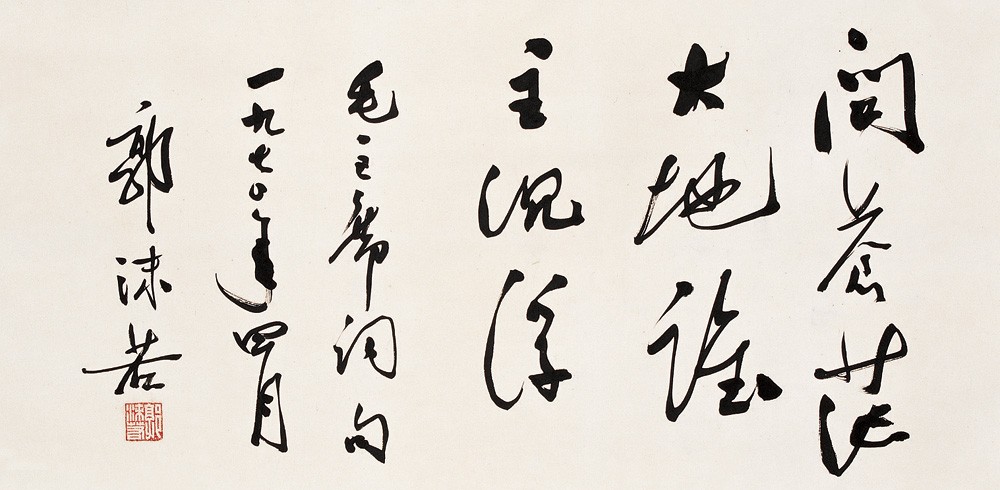 問蒼茫
大地誰
主沉浮
毛主席詞句
一九七〇年四月
郭沫若
郭沫若